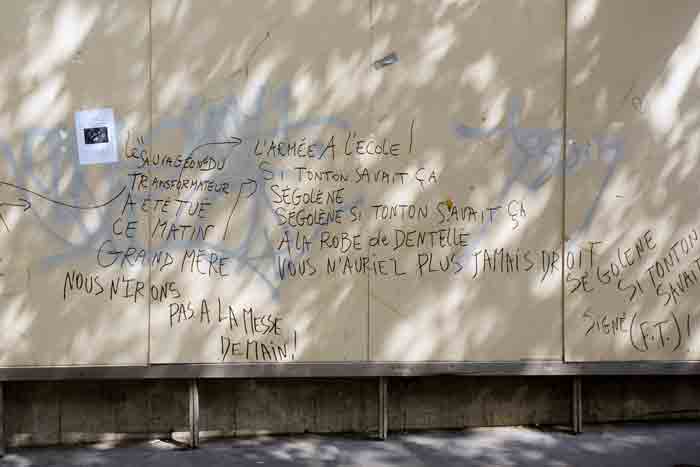 Le "
SAUVAGEON DU
TRANSFORMATEUR
A ÉTÉ TUÉ
CE MATIN
GRAND MÈRE
NOUS N'IRONS
PAS A LA MESSE
DEMAIN!
L'ARMÉE A L'ÉCOLE!
SI TONTON SAVAIT ÇA
SÉGOLÈNE
SÉGOLÈNE SI TONTON SAVAIT ÇA
A LA ROBE de DENTELLE
VOUS N'AURIEZ PLUS JAMAIS DROIT
SÉGOLÈNE
SI TONTON
SAVAIT
SIGNÉ (F.T.)!!